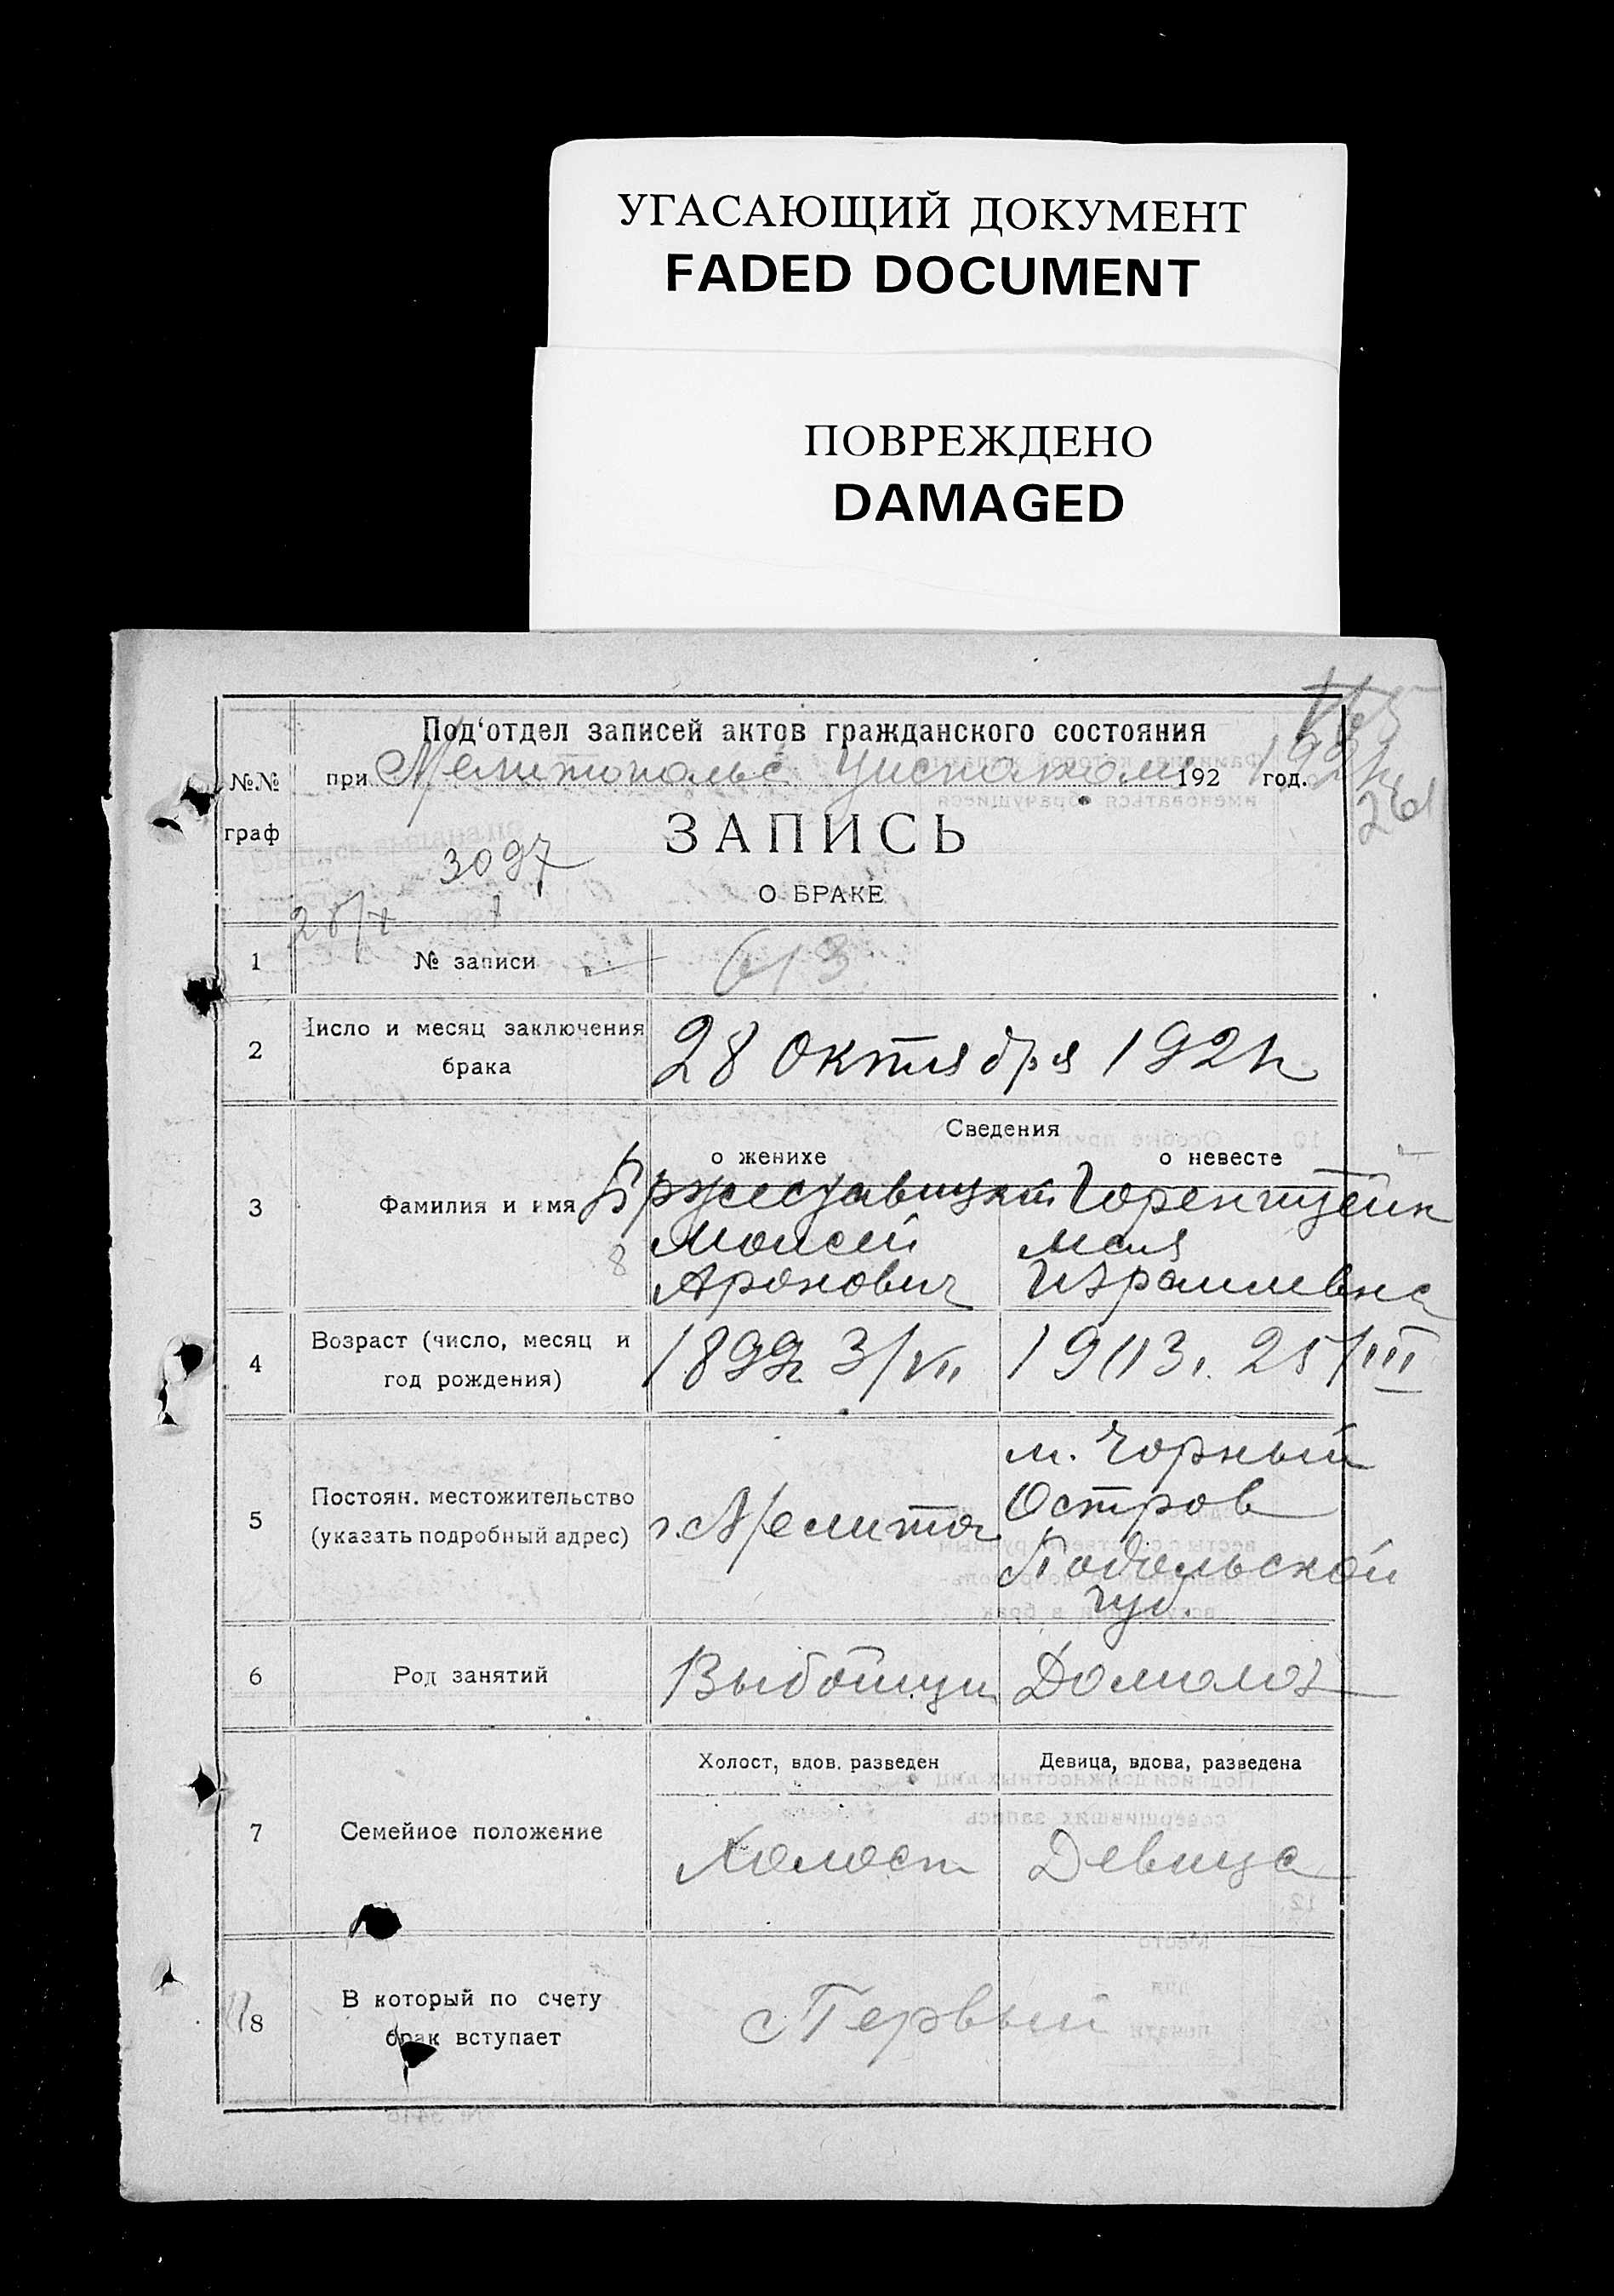 УГАСАЮЩИЙ ДОКУМЕНТ
FADED DOCUMENT
ПОВРЕЖДЕНО
DAMAGED
Под'отдел записей актов гражданского состояния
№№ граф
при Мелитопольс 192 год.
261
ЗАПИСЬ
3097
О БРАКЕ
28/X
1 № записи 613
2 Число и месяц заключения
брака
28 Октября 192
Сведения
о женихе о невесте
3 Фамилия и имя
Горенштейн
8
Моисей Маня
Аронович Израилевна
4 Возраст (число, месяц и
год рождения)
1899г. 3/VII 1903г. 25/III
5 Постоян. местожительство
(указать подробный адрес)
г. Мелитоп
м. Чорный
Остров
Подольской
губ.
6 Род занятий Домохоз
7 Семейное положение
Холост, вдов. разведен Девица, вдова, разведена
Холост Девица
8 В который по счету
брак вступает
Первый